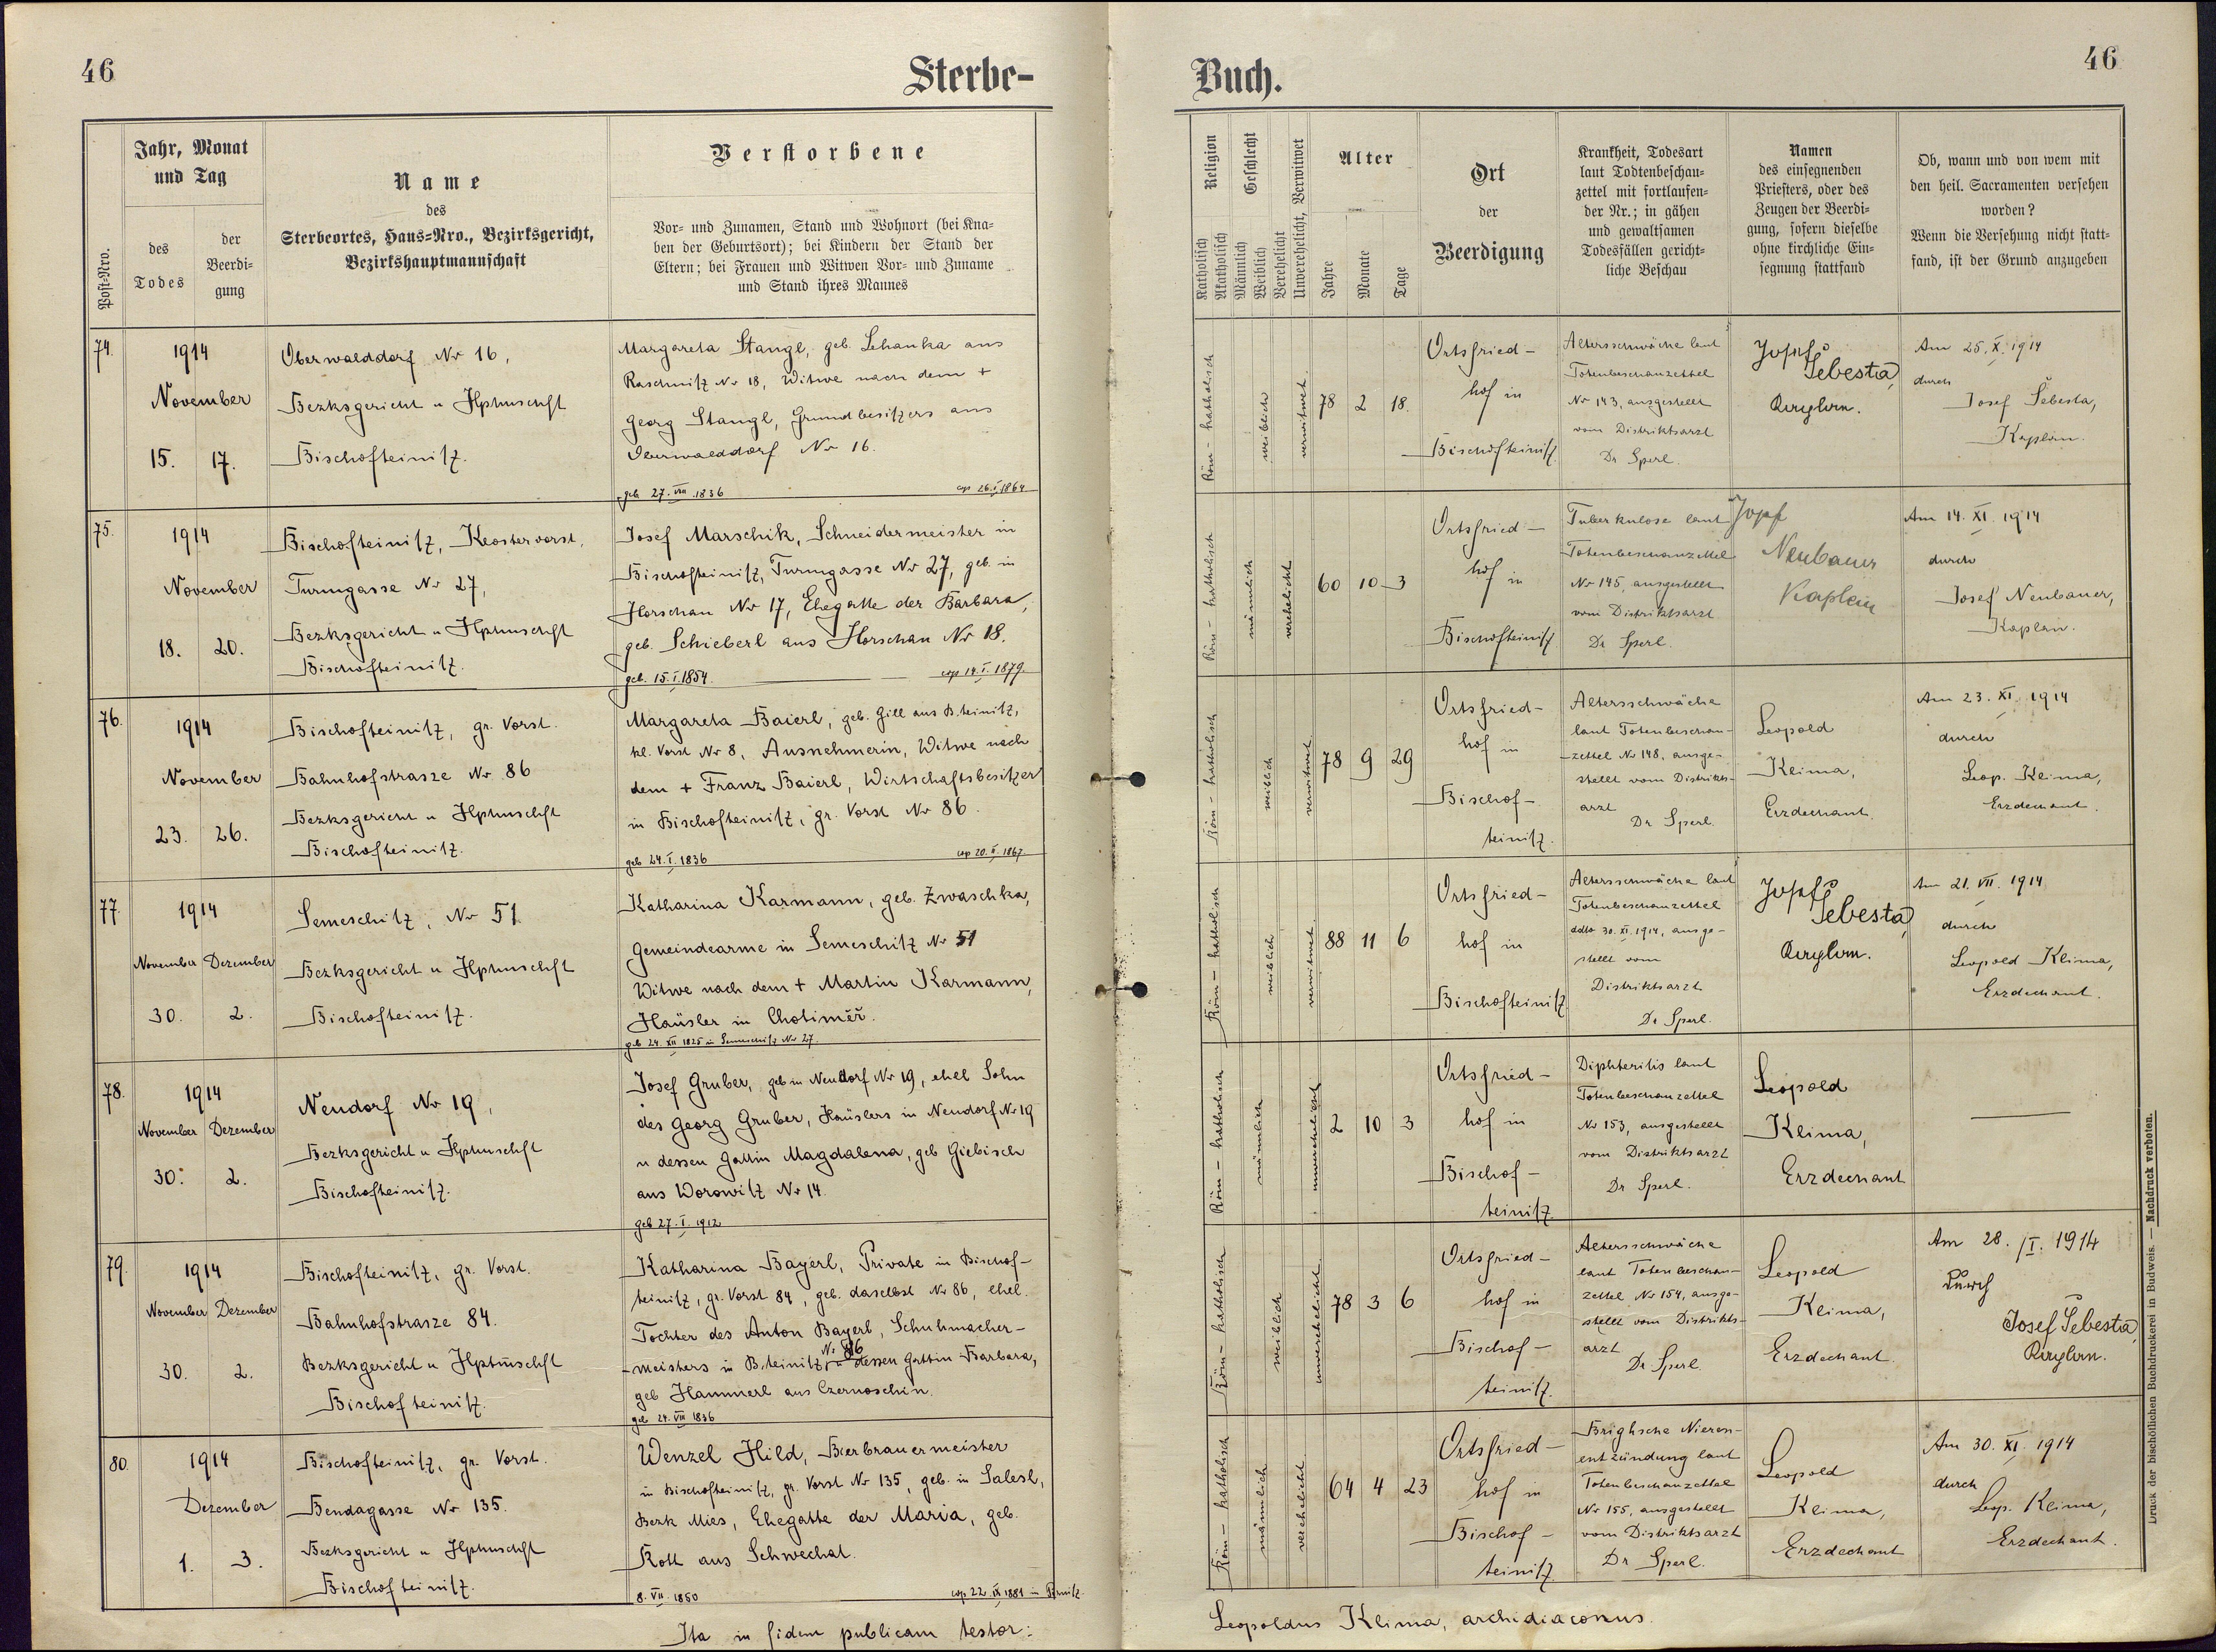 46
Sterbe-
Post-Nro.
Jahr, Monat
und Tag
des
Todes
der
Beerdi-
gung
Name
des
Sterbeortes, Haus-Nro., Bezirksgericht,
Bezirkshauptmannschaft
Verstorbene
Vor- und Zunamen, Stand und Wohnort (bei Kna-
ben der Geburtsort); bei Kindern der Stand der
Eltern; bei Frauen und Witwen Vor- und Zuname
und Stand ihres Mannes
74.
1914
November
15. 17.
Oberwalddorf Nr 16,
Bezksgericht u Hptmschft
Bischofteinitz.
Margareta Stangl, geb. Lehanka aus
Raschnitz Nr 18, Witwe nach dem +
Georg Stangl, Grundbesitzers aus
Oberwalddorf Nr 16.
geb. 27. VIII. 1836 cop 26. I. 1864
75.
1914
November
18. 20.
Bischofteinitz, Klostervorst,
Turmgasse Nr 27,
Bezksgericht u Hptmschft
Bischofteinitz.
Josef Marschik, Schneidermeister in
Bischofteinitz, Turmgasse Nr 27, geb. in
Horschau Nr 17, Ehegatte der Barbara,
geb. Schieberl aus Horschau Nr 18.
geb. 15. I. 1854. cop 14. I. 1879.
76.
1914
November
23. 26.
Bischofteinitz, gr. Vorst.
Bahnhofstrasze Nr 86
Bezksgericht u Hptmschft
Bischofteinitz.
Margareta Baierl, geb. Gill aus B.teinitz,
kl. Vorst Nr 8, Ausnehmerin, Witwe nach
dem + Franz Baierl, Wirtschaftsbesitzer
in Bischofteinitz, gr. Vorst Nr 86.
geb 24. I. 1836 cop 20. II. 1867.
77.
1914
November Dezember
30. 2.
Semeschitz, Nr 51.
Bezksgericht u Hptmschft
Bischofteinitz.
Katharina Karmann, geb. Zwaschka,
Gemeindearme in Semeschitz Nr 51
Witwe nach dem + Martin Karmann,
Häusler in Chotiměř.
geb 24. XII 1825 in Semeschitz Nr 27.
78.
1914
November Dezember
30. 2.
Neudorf Nr 19,
Bezksgericht u Hptmschft
Bischofteinitz.
Josef Gruber, geb in Neudorf Nr 19, ehel Sohn
des Georg Gruber, Häuslers in Neudorf Nr 19
u dessen Gattin Magdalena, geb Giebisch
aus Worowitz Nr 14.
geb 27. I. 1912
79.
1914
November Dezember
30. 2.
Bischofteinitz, gr. Vorst.
Bahnhofstrasze 84.
Bezksgericht u Hptmschft
Bischofteinitz.
Katharina Bayerl, Private in Bischof-
teinitz, gr. Vorst 84, geb. daselbst Nr 86, ehel.
Tochter des Anton Bayerl, Schuhmacher-
Nr 86
meisters in B.teinitz, u dessen Gattin Barbara,
geb Hammerl aus Czernoschin.
geb 24. VIII 1836
80.
1914
Dezember
1. 3.
Bischofteinitz, gr. Vorst.
Bendagasse Nr 135.
Bezksgericht u Hptmschft
Bischofteinitz.
Wenzel Hild, Bierbrauermeister
in Bischofteinitz, gr. Vorst Nr 135, geb. in Salesl,
Bezk Mies, Ehegatte der Maria, geb.
Kott aus Schwechat.
8. VII. 1850 cop 22. IX 1881 in
Ita in fidem publicam testor:
Buch.
46
Religion
Katholisch
Akatholisch
Geschlecht
Männlich
Weiblich
Verehelicht
Unverehelicht, Verwitwet
Alter
Jahre
Monate
Tage
Ort
der
Beerdigung
Krankheit, Todesart
laut Todtenbeschau-
zettel mit fortlaufen-
der Nr.; in gähen
und gewaltsamen
Todesfällen gericht-
liche Beschau
Namen
des einsegnenden
Priesters, oder des
Zeugen der Beerdi-
gung, sofern dieselbe
ohne kirchliche Ein-
segnung stattfand
Ob, wann und von wem mit
den heil. Sacramenten versehen
worden?
Wenn die Versehung nicht statt-
fand, ist der Grund anzugeben
Röm - katholisch
weiblich
verwitwet
78 2 18.
Ortsfried-
hof in
Bischofteinitz
Altersschwäche laut
Totenbeschauzettel
Nr 143, ausgestellt
vom Distriktsarzt
Dr Sperl.
Josef
Šebesta,
Kaplan.
Am 25. X. 1914
durch
Josef Šebesta,
Kaplan.
Röm - katholisch
männlich
verehelicht
60 10 3
Ortsfried-
hof in
Bischofteinitz
Tuberkulose laut
Totenbeschauzettel
Nr 145, ausgestellt
vom Distriktsarzt
Dr Sperl.
Josef
Neubauer
Kaplan
Am 14. XI. 1914
durch
Josef Neubauer,
Kaplan.
Röm - katholisch
weiblich
verwitwet
78 9 29
Ortsfried-
hof in
Bischof-
teinitz.
Altersschwäche
laut Totenbeschau-
zettel Nr 148, ausge-
stellt vom Distrikts-
arzt
Dr Sperl.
Leopold
Klima,
Erzdechant.
Am 23. XI. 1914
durch
Leop. Klima,
Erzdechant.
Röm - katholisch
weiblich
verwitwet
88 11 6
Ortsfried-
hof in
Bischofteinitz
Altersschwäche laut
Totenbeschauzettel
ddto 30. XI. 1914, ausge-
stellt vom
Distriktsarzt
Dr Sperl.
Josef
Šebesta,
Kaplan.
Am 21. VII. 1914
durch
Leopold Klima,
Erzdechant.
Röm - katholisch
männlich
unverehelicht
2 10 3
Ortsfried-
hof in
Bischof-
teinitz.
Diphteritis laut
Totenbeschauzettel
Nr 153, ausgestellt
vom Distriktsarzt
Dr Sperl.
Leopold
Klima,
Erzdechant
Röm - katholisch
weiblich
unverehelicht
78 3 6
Ortsfried-
hof in
Bischof-
teinitz.
Altersschwäche
laut Totenbeschau-
zettel Nr 154, ausge-
stellt vom Distrikts-
arzt
Dr Sperl
Leopold
Klima,
Erzdechant.
Am 28. I. 1914
durch
Josef Šebesta,
Kaplan.
Röm - katholisch
männlich
verehelicht
64 4 23
Ortsfried-
hof in
Bischof-
teinitz.
Brighsche Nieren-
entzündung laut
Totenbeschauzettel
Nr 155, ausgestellt
vom Distriktsarzt
Dr Sperl.
Leopold
Klima,
Erzdechant
Am 30. XI. 1914
durch
Leop. Klima,
Erzdechant.
Leopoldus Klima, archidiaconus.
Druck der bischöflichen Buchdruckerei in Budweis. — Nachdruck verboten.